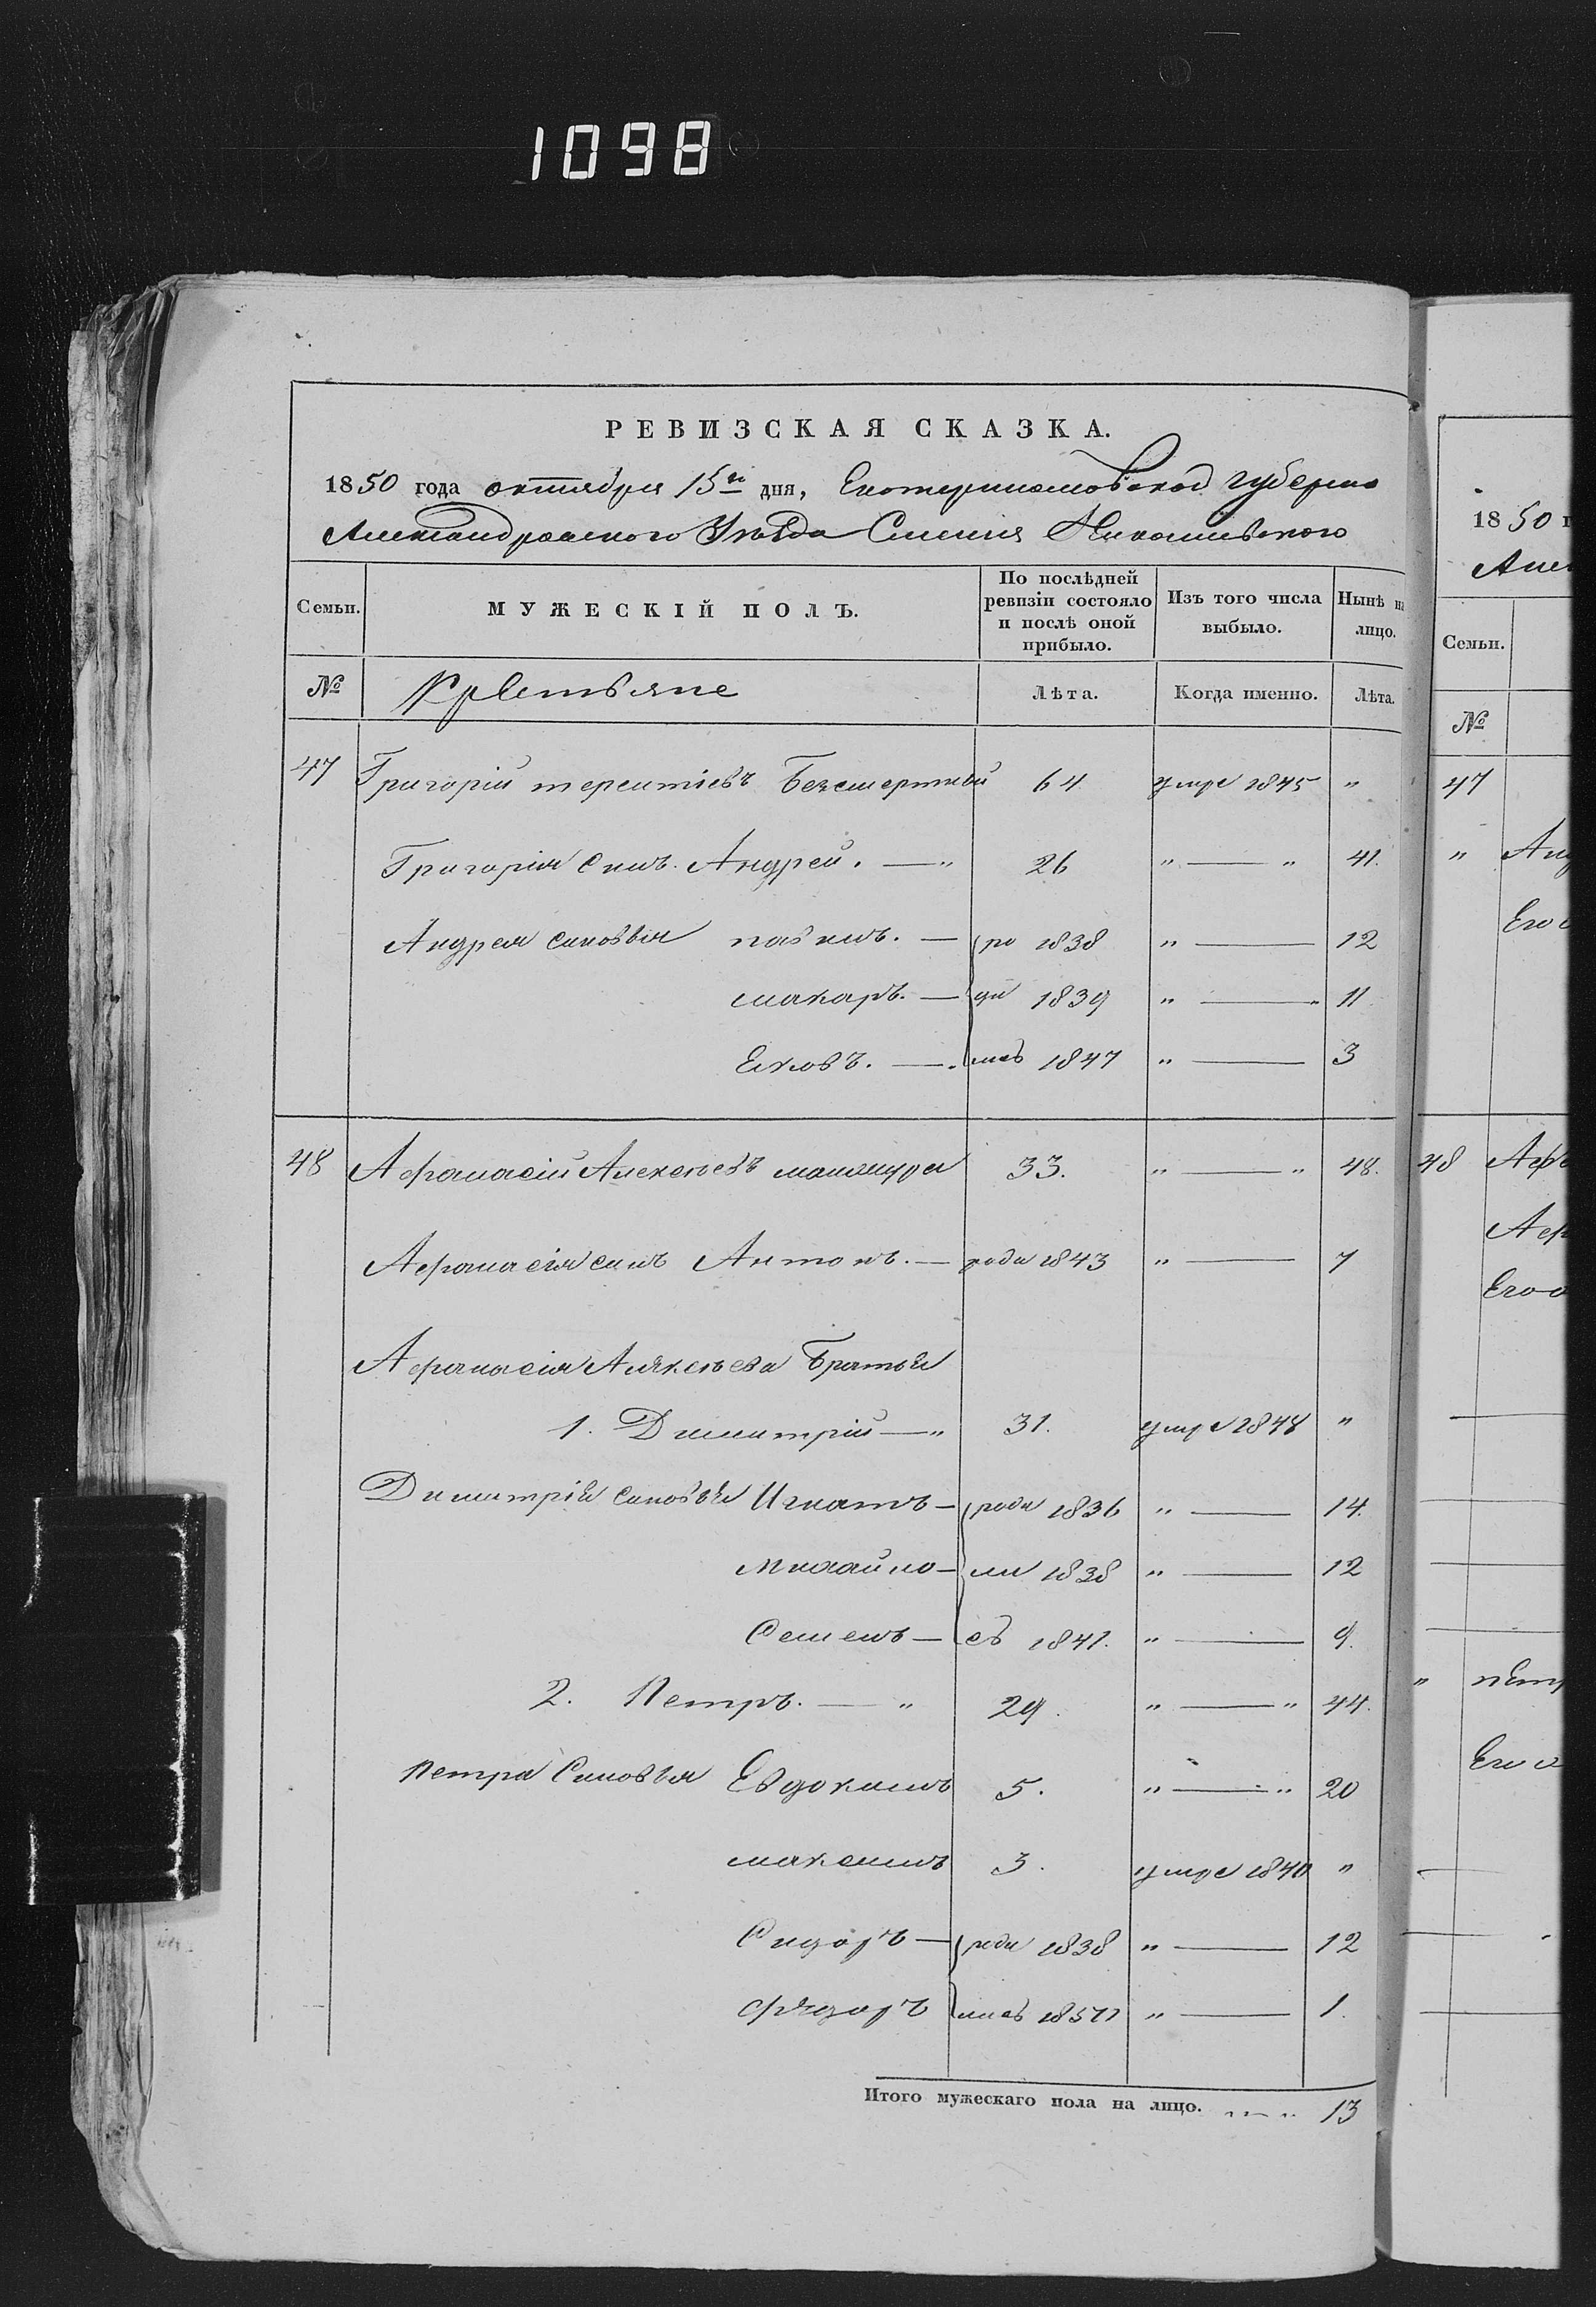 1098
РЕВИЗСКАЯ СКАЗКА.
1850 года октября 15го дня, Екатеринославской губернiи
Александровского Уезда Селенiя
Семьи. МУЖЕСКIЙ ПОЛЪ. По послѣдней ревизiи состояло и послѣ оной прибыло. Изъ того числа выбыло. Нынѣ на лицо.
№ Крестьяне Лѣта. Когда именно. Лѣта.
47 Григорiй терентiевъ Безсмертный 64 умре 1845 "
Григорiя синъ Андрей. — " 26 " — " 41.
Андрея синовья павилъ. — ро 1838 " — 12
макаръ. — ди 1839 " — " 11
Яковъ. — лись 1847 " — 3
48 Афанасiй Алексеевъ 33. " — " 48.
Афанасiя синъ Антонъ. — роди 1843 " — 7
Афанасiя Алексеева Братья
1. Димитрiй — " 31. умре 1848 "
Димитрiя синовья Игнатъ — роди 1836 " — 14.
Михайло — ли 1838 " — 12
Семенъ — съ 1841. " — 9.
2. Петръ. — " 29. " — " 44.
Петра Синовья Евдокимъ 5. " — " 20
максимъ 3. умре 1840 "
Сидоръ — роди 1838 " — 12
федоръ лись " — 1.
Итого мужескаго пола на лицо. 13
1850
Семьи.
№
47
"
Его
48
"
Его